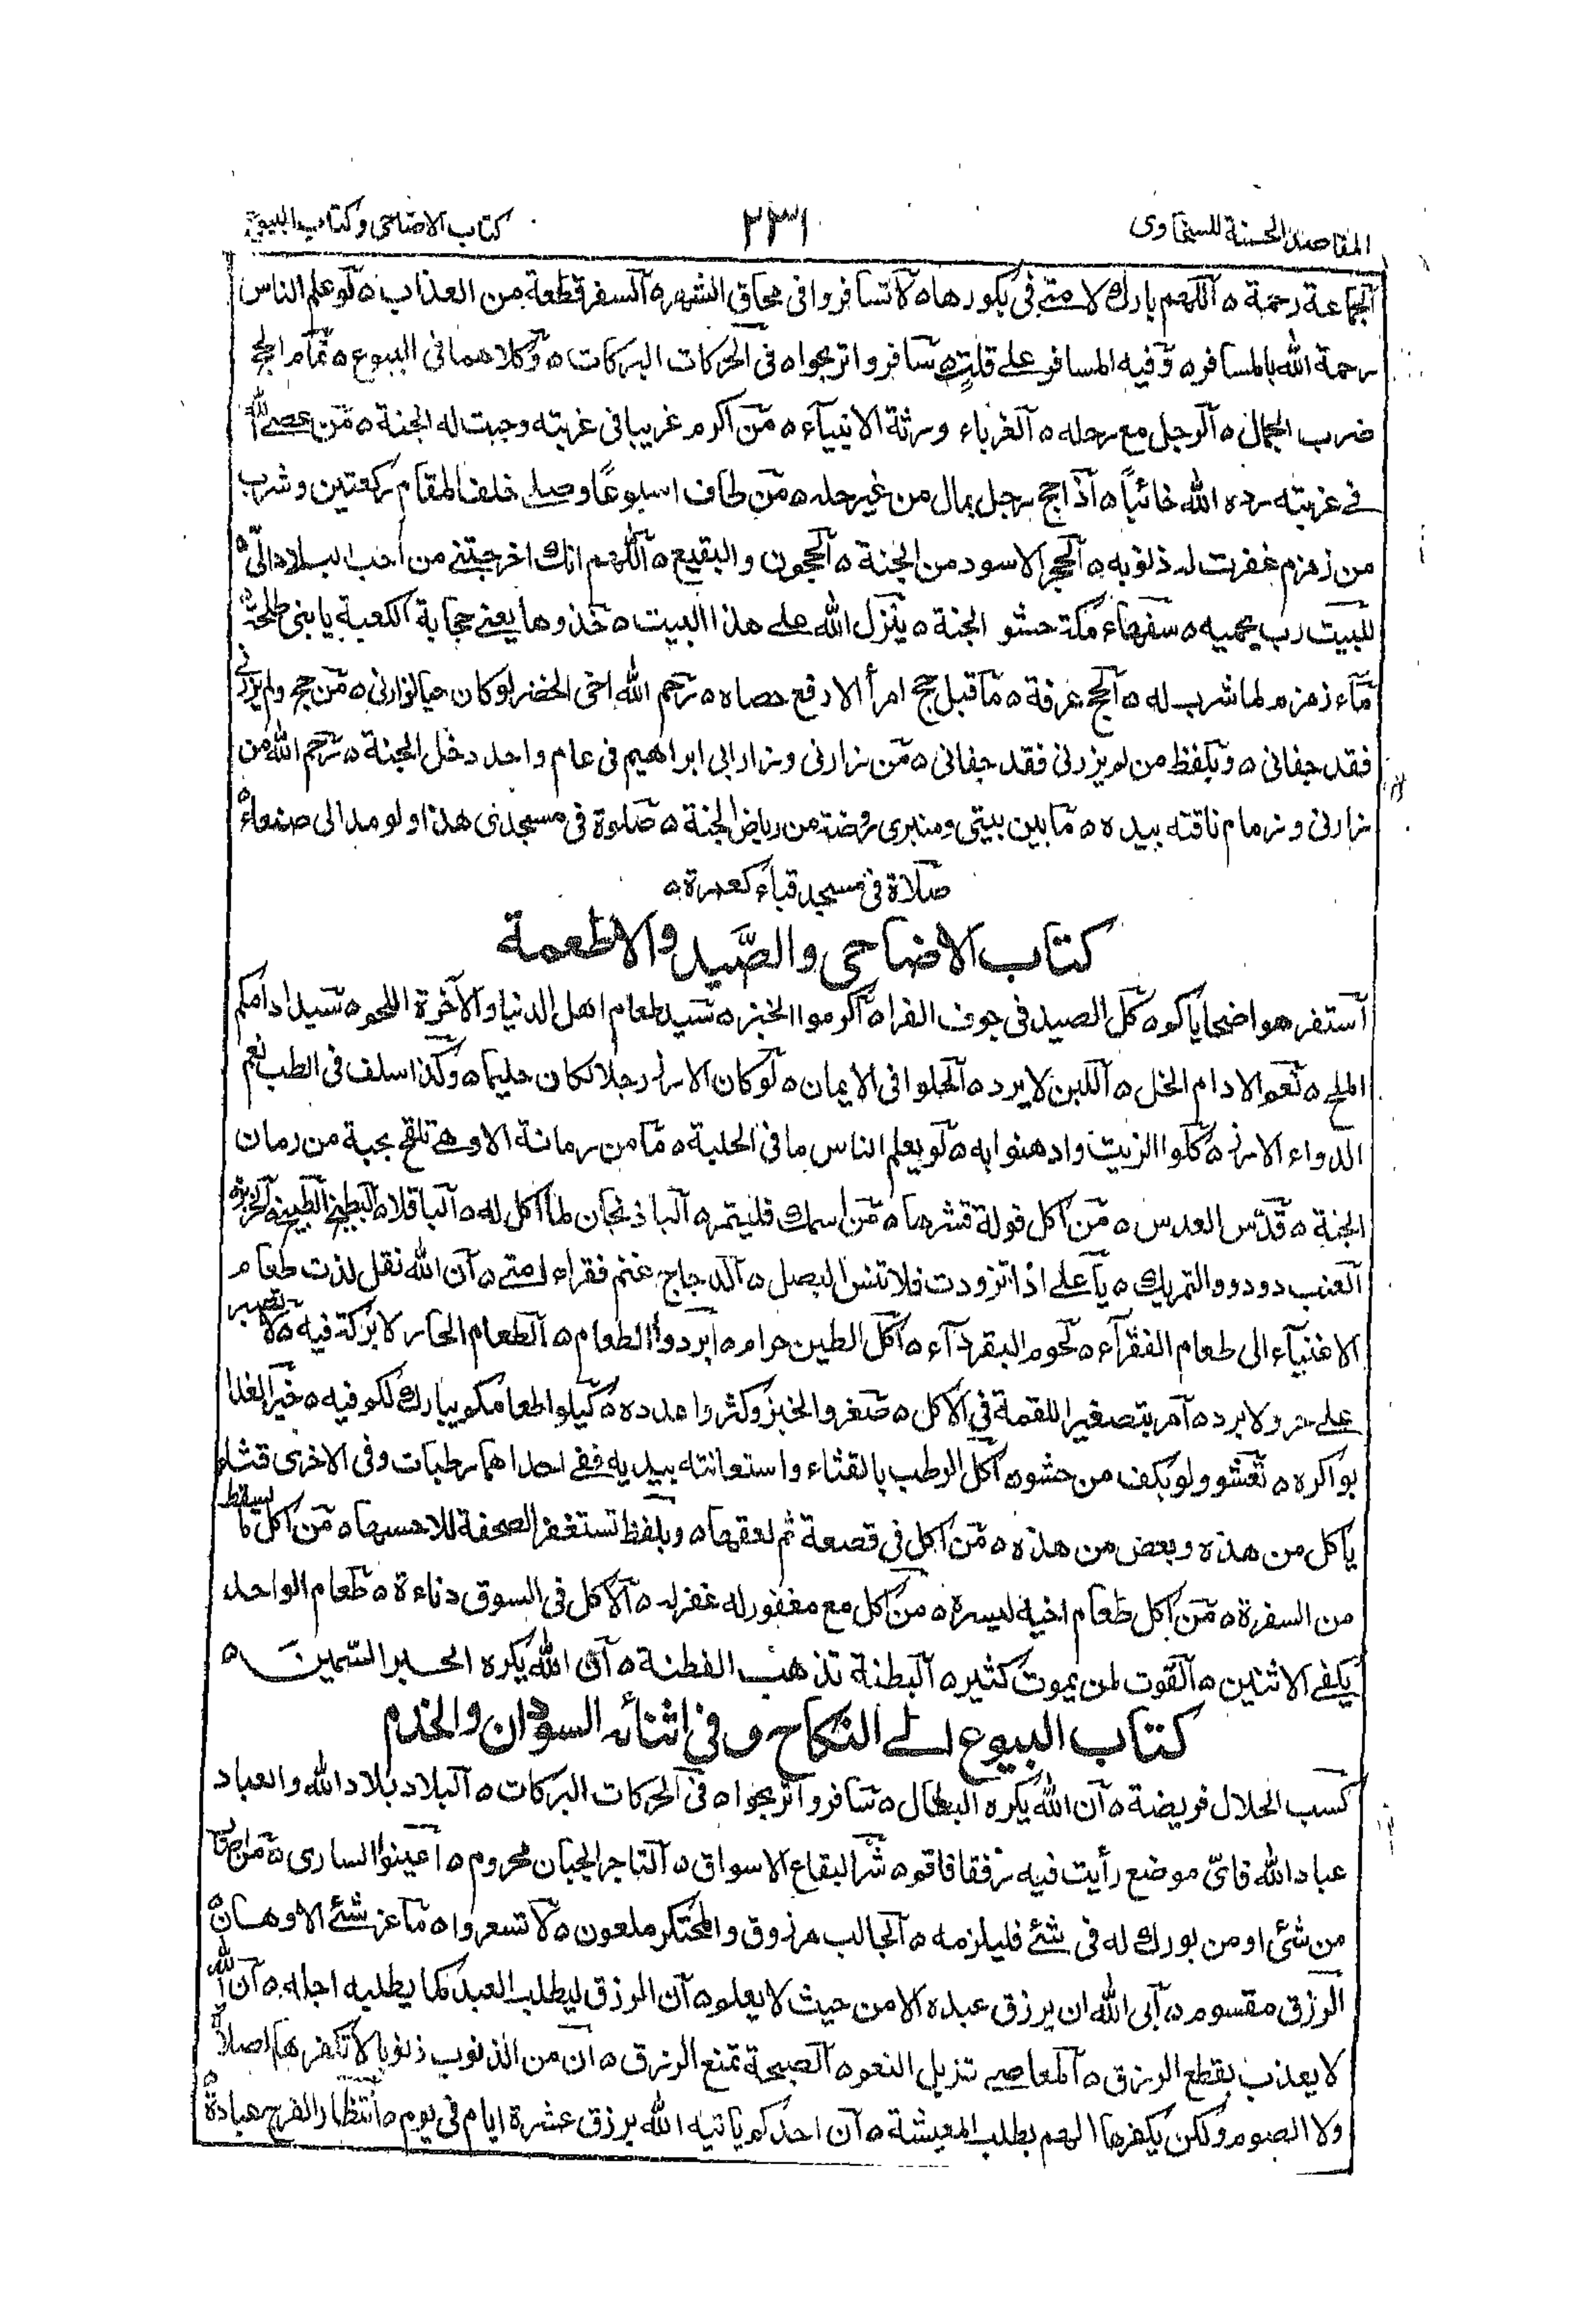 المقاصد الحسنة للسخاوى
٢٣١
كتاب الاضاحى وكتاب البيوع
الجماعة رحمة ه اللهم بارك لامتى فى بكورها ه لا تسافروا فى محاق الشهر ه السفر قطعة من العذاب ه لو علم الناس
رحمة الله بالمسافر ه وفيه المسافر على قلت ه سافروا تربحوا ه فى الحركات البركات ه وكلاهما فى البيوع ه تمام الحج
ضرب الجمال ه الرجل مع رحله ه الغرباء ورثة الانبيآء ه من اكرم غريبا فى غربته وجبت له الجنة ه من عصى الله
فى غربته رده الله خائباً ه اذا حج رجل بمال من غير حله ه من طاف اسبوعًا وصلى خلف المقام ركعتين وشرب
من زمزم غفرت له ذنوبه ه الحجر الاسود من الجنة ه الحجون والبقيع ه اللهم انك اخرجتنى من احب البلاد الىّ ه
للبيت رب يحميه ه سفهاء مكة حشو الجنة ه ينزل الله على هذا البيت ه خذوها يعنى حجابة الكعبة يا بنى طلحة ه
مآء زمزم لما شرب له ه الحج عرفة ه ما قبل حج امرأ الا رفع حصاه ه رحم الله اخى الخضر لو كان حيا لزارنى ه من حج ولم يزرنى
فقد جفانى ه وبلفظ من لم يزرنى فقد جفانى ه من زارنى وزار ابى ابراهيم فى عام واحد دخل الجنة ه رحم الله من
زارنى وزمام ناقته بيده ه ما بين بيتى ومنبرى روضة من رياض الجنة ه صلوة فى مسجدى هذا ولو مد الى صنعاء ه
صلاة فى مسجد قباء كعمرة ه
كتاب الاضاحى والصَّيد والاطعمة
استفرهوا ضحاياكم ه كل الصيد فى جوف الفرا ه اكرموا الخبز ه سيد طعام اهل الدنيا والآخرة اللحم ه سيد ادامكم
الملح ه نعم الادام الخل ه اللبن لا يرد ه الحلوا فى الايمان ه لو كان الارز رجلا لكان حليما ه وكذا سلف فى الطب نعم
الدواء الارز ه كلوا الزيت وادهنوا به ه لو يعلم الناس ما فى الحلبة ه ما من رمانة الا وهى تلقح بحبة من رمان
الجنة ه قدّس العدس ه من اكل فولة قشرها ه من اسمك فليتمر ه الباذنجان لما اكل له ه الباقلا ه البطيخ الطبيخ
العنب دودو والتمر يك ه يا على اذا تزودت فلا تنس البصل ه الدجاج غنم فقراء امتى ه ان الله نقل لذت طعام
الاغنيآء الى طعام الفقرآء ه لحوم البقر دآء ه اكل الطين حرام ه ابردوا الطعام ه الطعام الحار لا بركة فيه ه لا نصبر
على حر ولا برد ه امر بتصغير اللقمة فى الاكل ه صغروا الخبز وكثروا عدده ه كيلوا طعامكم يبارك لكم فيه ه خير الغدا
بواكره ه تعشو ولو بكف من حشو ه اكل الرطب بالقثاء واستعانته بيديه ففى احداهما رطبات وفى الاخرى قثاء
يأكل من هذه وبعض من هذه ه من اكل فى قصعة ثم لعقها ه وبلفظ تستغفر الصحفة للاحسها ه من اكل ما يسقط
من السفرة ه من اكل طعام اخيه ليسره ه من اكل مع مغفور له غفر له ه الاكل فى السوق دناءة ه طعام الواحد
يكفى الاثنين ه القوت لمن يموت كثير ه البطنة تذهب الفطنة ه ان الله يكره الحبر السّمين ه
كتاب البيوع الى النكاح وفى اثنائه السودان والخدم
كسب الحلال فريضة ه ان الله يكره البطال ه سافروا تربحوا ه فى الحركات البركات ه البلاد بلاد الله والعباد
عباد الله فاىّ موضع رأيت فيه رفقا فاقم ه شر البقاع الاسواق ه التاجر الجبان محروم ه اعينوا السارى ه من اصاب
من شئ او من بورك له فى شئ فليلزمه ه الجالب مرزوق والمحتكر ملعون ه لا تسعروا ه ما عز شئ الا وهان ه
الرزق مقسوم ه ابى الله ان يرزق عبده الا من حيث لا يعلم ه ان الرزق ليطلب العبد كما يطلبه اجله ه ان الله
لا يعذب بقطع الرزق ه المعاصى تزيل النعم ه الصبحة تمنع الرزق ه ان من الذنوب ذنوبا لا تكفرها الصلاة
ولا الصوم ولكن يكفرها الهم بطلب المعيشة ه ان احدكم ياتيه الله برزق عشرة ايام فى يوم ه انتظار الفرج عبادة ه